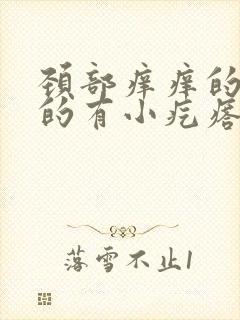 颈部痒痒的
的有小疙瘩
落雪不止1